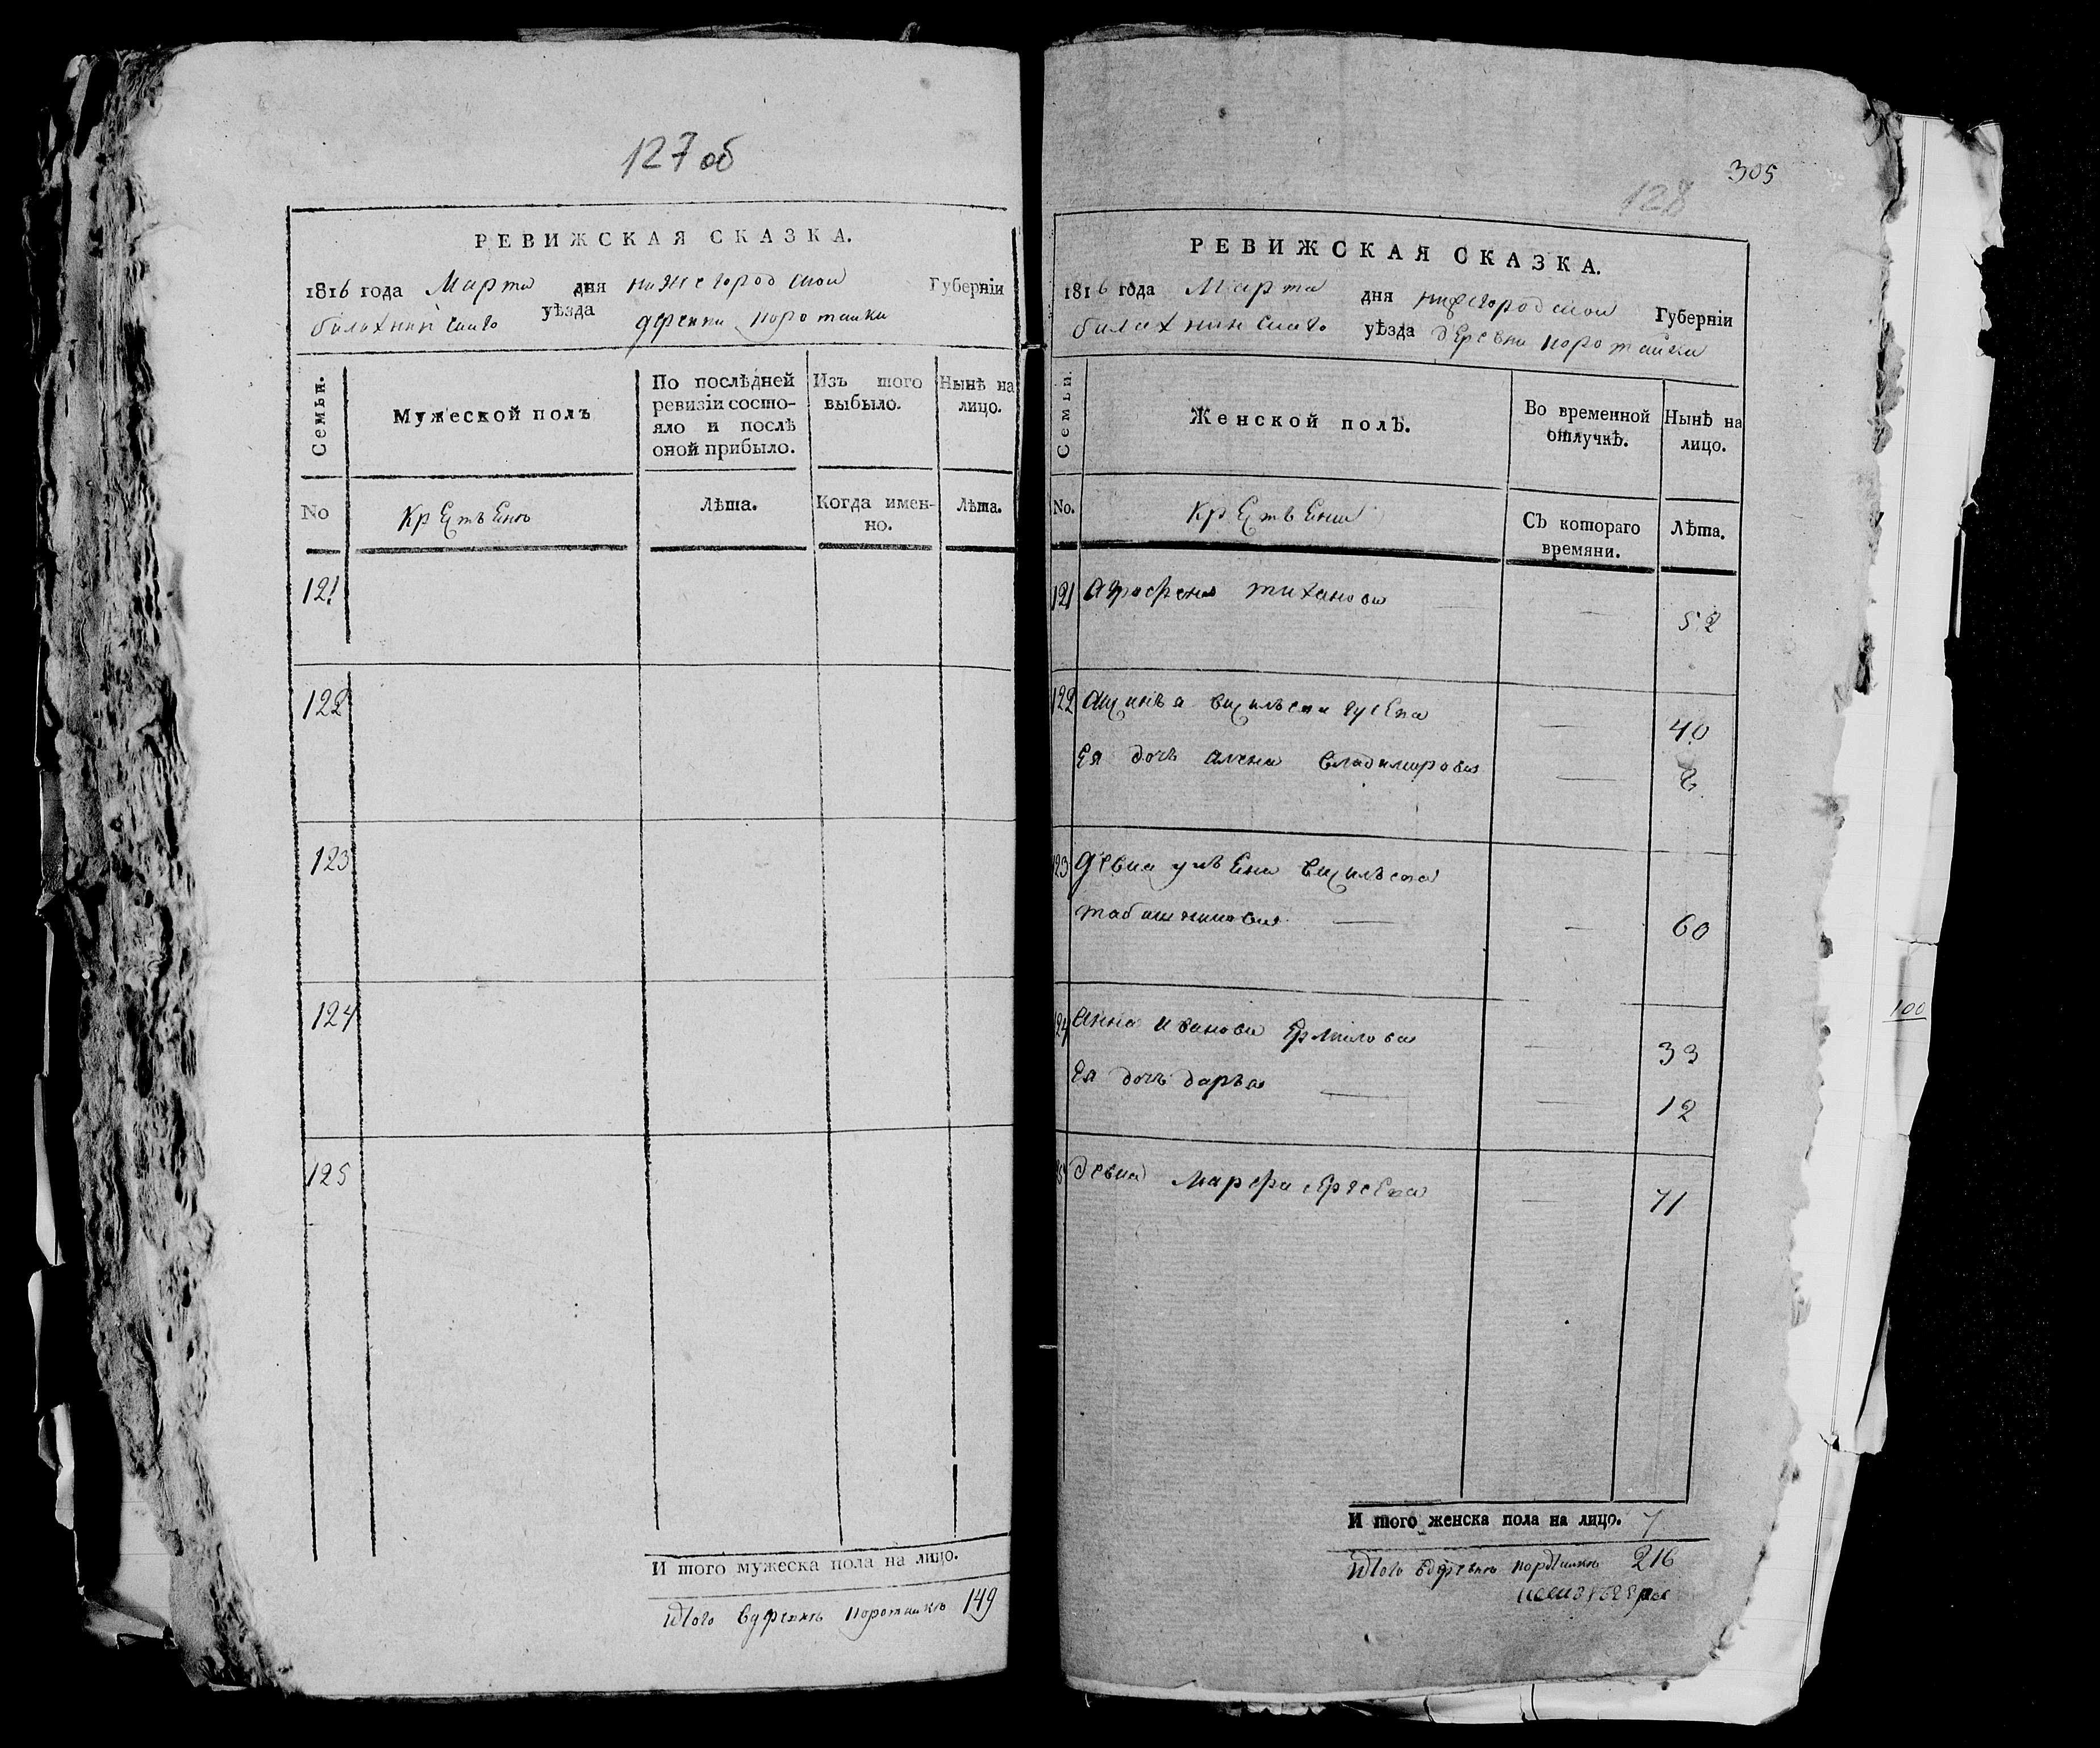 127 об
РЕВИЖСКАЯ СКАЗКА.
1816 года Марта дня нижегородской Губерніи
балахнинскаго уѣзда деревни коротайки
Семьи.
Мужеской полъ
По послѣдней ревизіи состояло и послѣ оной прибыло.
Изъ того выбыло.
Нынѣ на лицо.
No
крестьенъ
Лѣта.
Когда именно.
Лѣта.
121
122
123
124
125
И того мужеска пола на лицо.
итого 149
305
128
РЕВИЖСКАЯ СКАЗКА.
1816 года Марта дня нижегородской Губерніи
балахнинскаго уѣзда деревни коротайки
Семьи.
Женской полъ.
Во временной отлучкѣ.
Нынѣ на лицо.
No.
Съ котораго времяни.
Лѣта.
121 Афросенья тиханова — — 52
122 Аксинья васильева гусева — 40
Ея дочь алена владимирова — 8
123 девка ульена васильева
табашникова — — 60
124 Анна иванова Ермилова — 33
Ея дочь дарья — — 12
125 девка Марфа сергеева — 71
И того женска пола на лицо. 7
итого 216
100